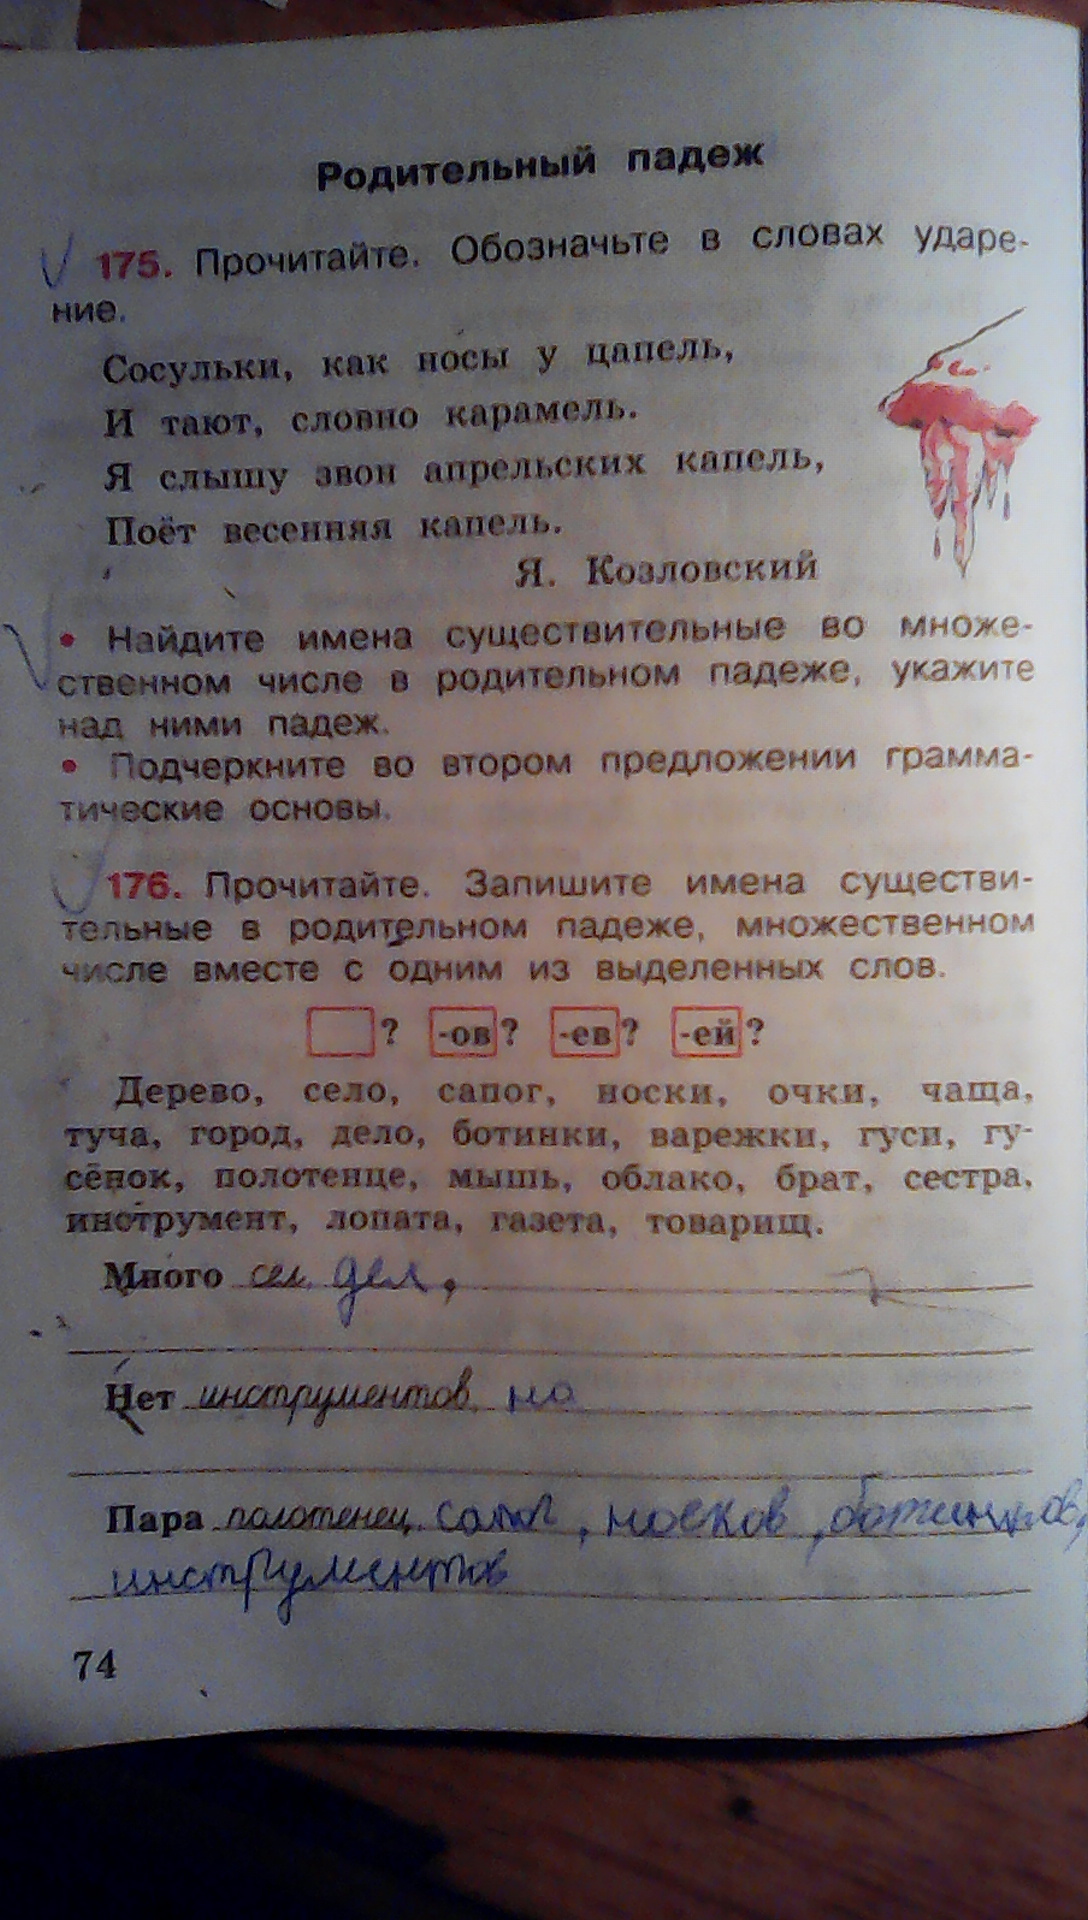 Родительный падеж
175. Прочитайте. Обозначьте в словах ударе-
ние.
Сосульки, как носы у цапель,
И тают, словно карамель.
Я слышу звон апрельских капель,
Поёт весенняя капель.
Я. Козловский
• Найдите имена существительные во множе-
ственном числе в родительном падеже, укажите
над ними падеж.
• Подчеркните во втором предложении грамма-
тические основы.
176. Прочитайте. Запишите имена существи-
тельные в родительном падеже, множественном
числе вместе с одним из выделенных слов.
? -ов? -ев? -ей?
Дерево, село, сапог, носки, очки, чаща,
туча, город, дело, ботинки, варежки, гуси, гу-
сёнок, полотенце, мышь, облако, брат, сестра,
инструмент, лопата, газета, товарищ.
Много сел, дел,
Нет инструментов, но
Пара полотенец, сапог, носков, ботинков,
инструментов
74